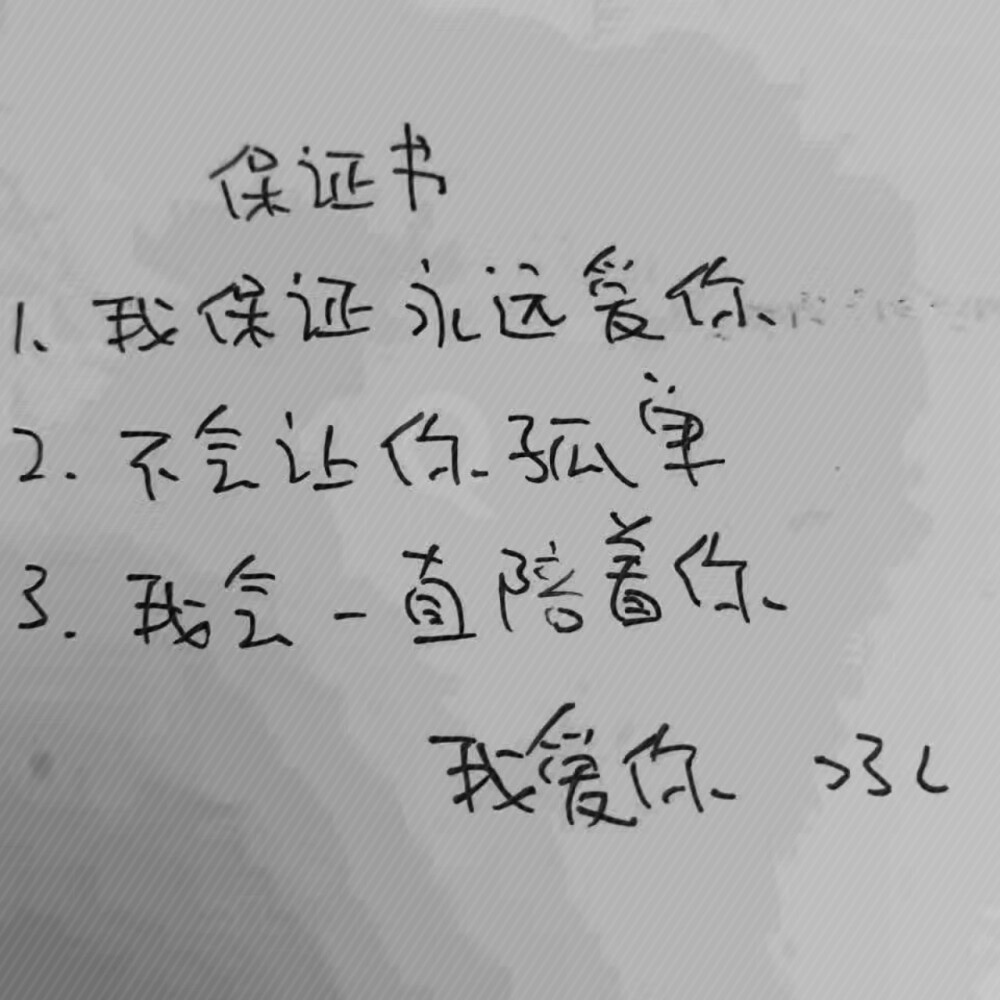 保证书
1. 我保证永远爱你
2. 不会让你孤单
3. 我会一直陪着你
我爱你 >3<